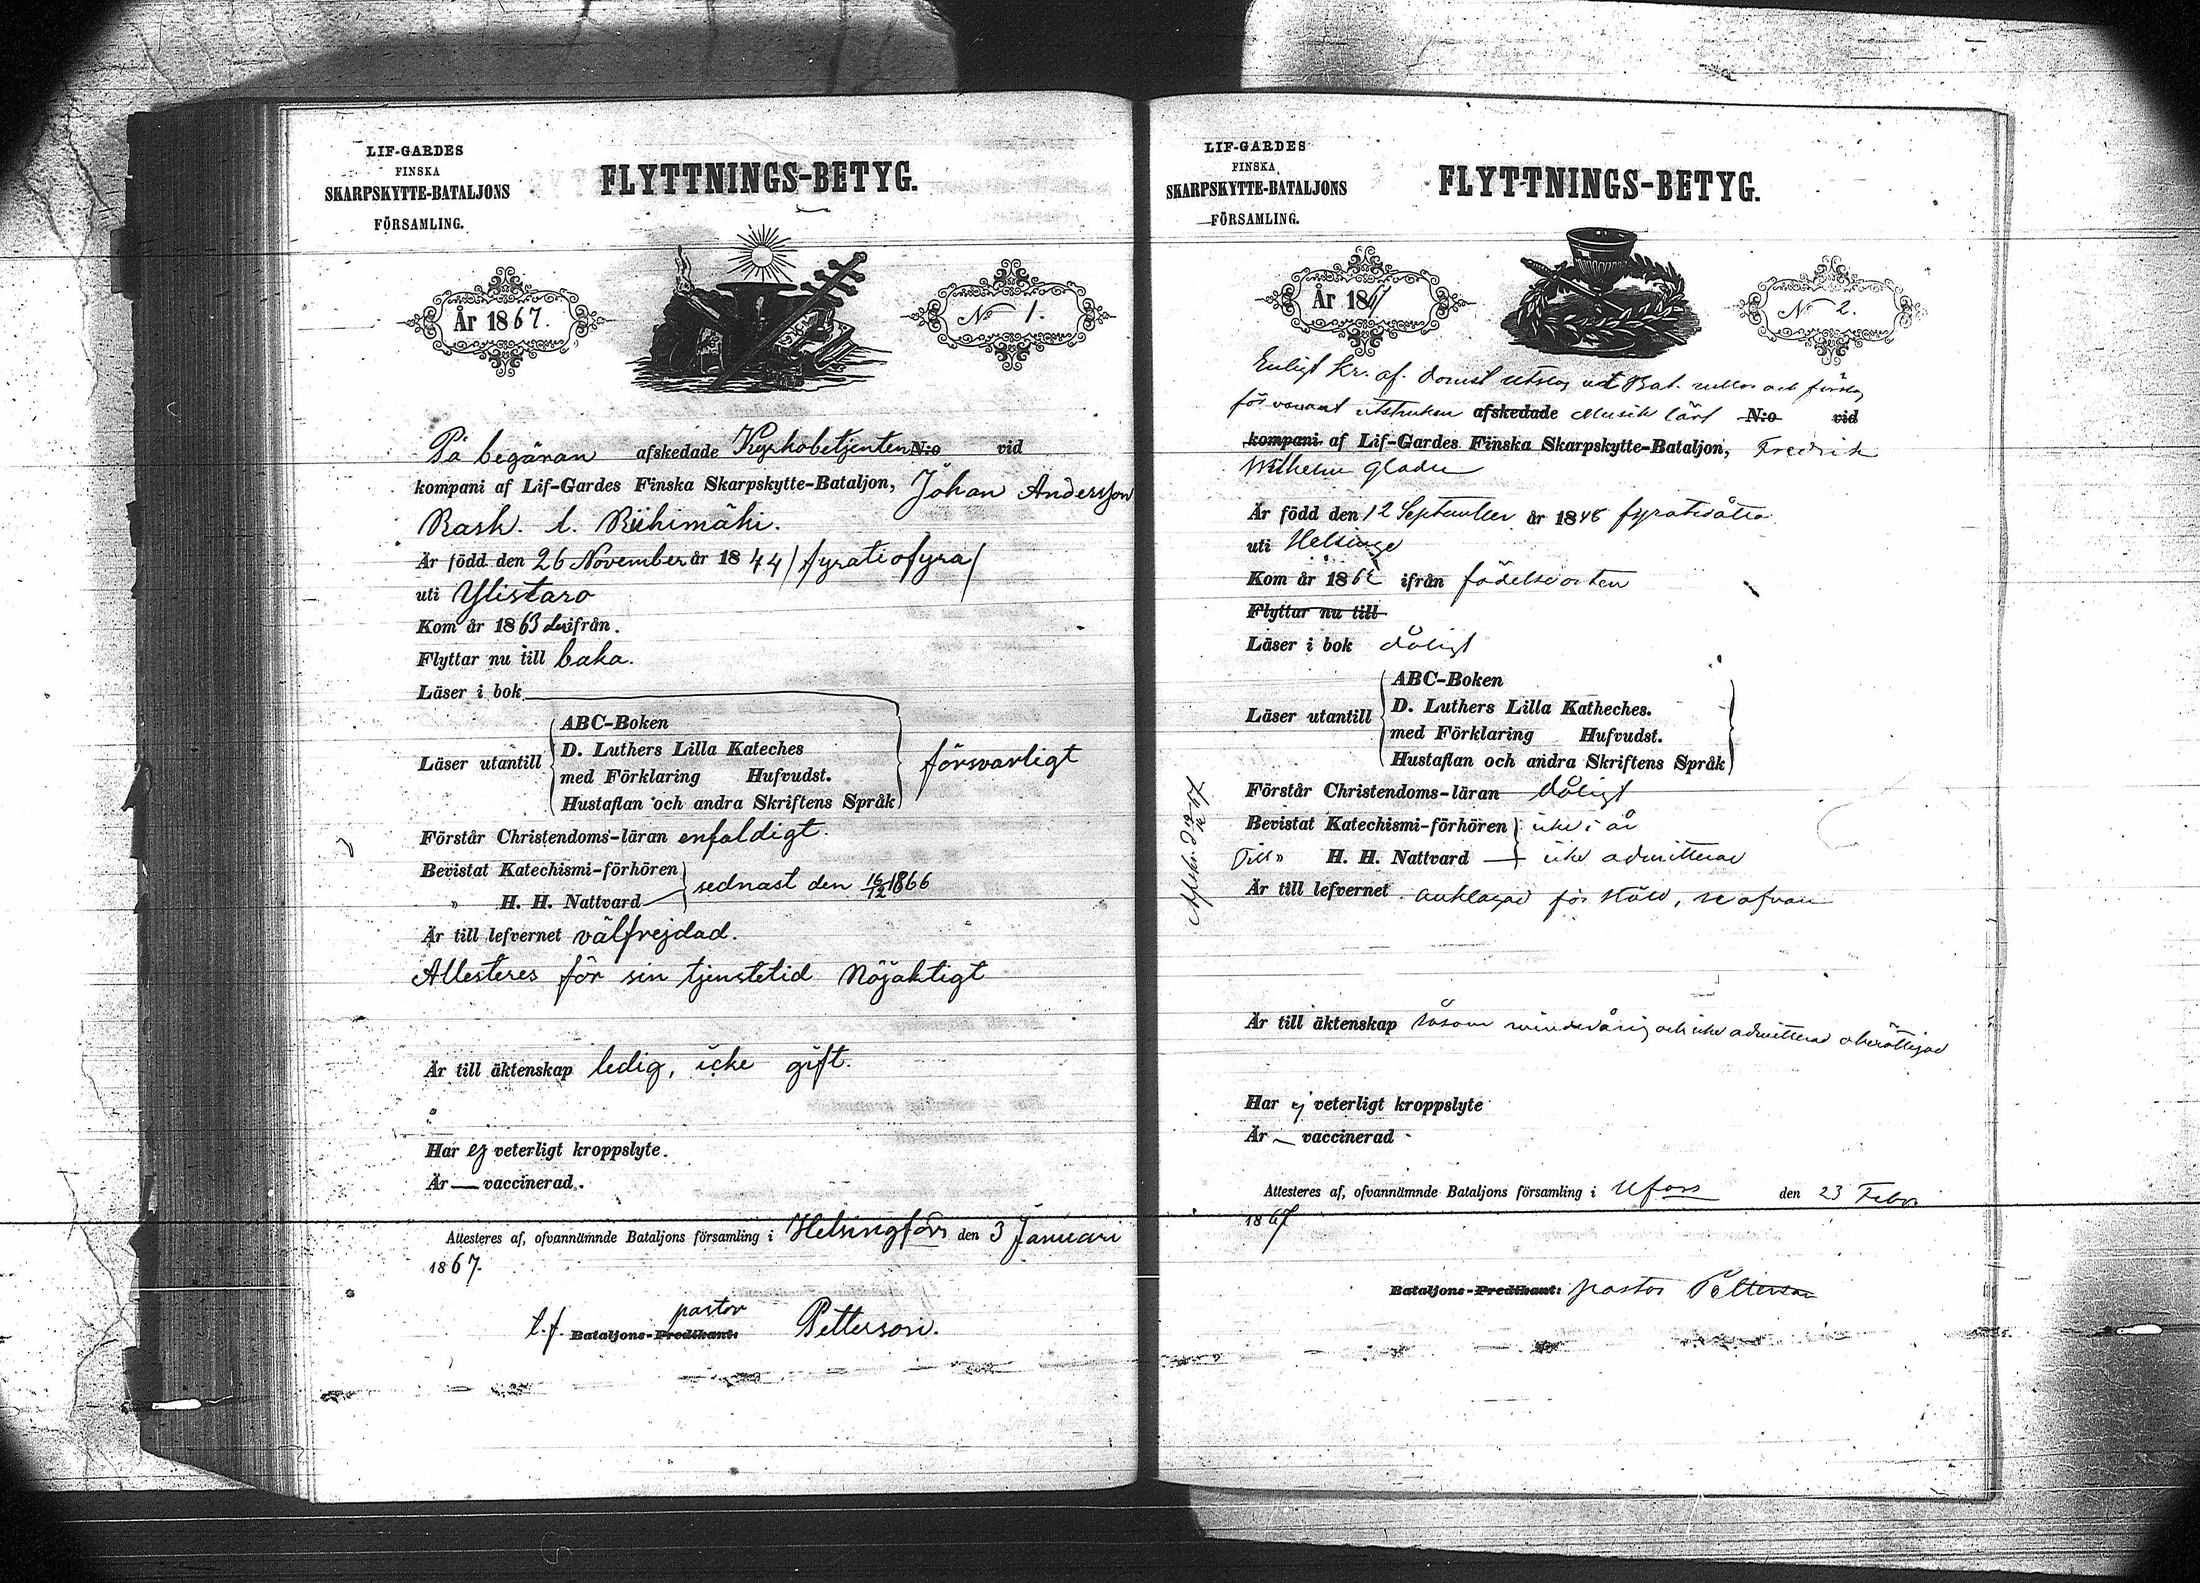 LIF-GARDES
FINSKA
SKARPSKYTTE-BATALJONS
FÖRSAMLING.
FLYTTNINGS-BETYG.
År 1867.
No 1.
På begäran afskedade Kyrkobetjenten N:o vid
kompani af Lif-Gardes Finska Skarpskytte-Bataljon, Johan Andersson
Rask. l. Riihimäki.
Är född den 26 November år 1844 / fyratiofyra /
uti Ylistaro
Kom år 1863 der ifrån.
Flyttar nu till baka.
Läser i bok
Läser utantill
ABC-Boken
D. Luthers Lilla Kateches
med Förklaring Hufvudst.
Hustaflan och andra Skriftens Språk
försvarligt
Förstår Christendoms-läran enfaldigt.
Bevistat Katechismi-förhören
" H. H. Nattvard
sednast den 16/12 1866
Är till lefvernet välfrejdad.
Attesteres för sin tjenstetid Nöjaktigt
Är till äktenskap ledig, icke gift.
Har ej veterligt kroppslyte.
Är — vaccinerad.
Attesteres af, ofvannämnde Bataljons församling i Helsingfors den 3 Januari
1867.
t.f. pastor
Bataljons-Predikant: Petterson.
LIF-GARDES
FINSKA
SKARPSKYTTE-BATALJONS
FÖRSAMLING.
FLYTTNINGS-BETYG.
År 1867
No 2.
Enligt Kr. af. domst utslag ut Bat. rullor och
för utstruken afskedade Musik lärl N:o vid
kompani af Lif-Gardes Finska Skarpskytte-Bataljon, Fredrik
Wilhelm
Är född den 12 September år 1848 fyratioåtta
uti Helsinge
Kom år 186 ifrån födelseorten
Flyttar nu till
Läser i bok dåligt
Läser utantill
ABC-Boken
D. Luthers Lilla Katheches.
med Förklaring Hufvudst.
Hustaflan och andra Skriftens Språk
Förstår Christendoms-läran dåligt
Bevistat Katechismi-förhören icke i år
Till " H. H. Nattvard icke admitterad
Är till lefvernet anklagad för stöld, se ofvan
Är till äktenskap såsom minderårig och icke admitterad oberättigad
Har ej veterligt kroppslyte
Är — vaccinerad
Attesteres af, ofvannämnde Bataljons församling i Hfors den 23 Febr.
1867
Bataljons-Predikant: pastor Petterson